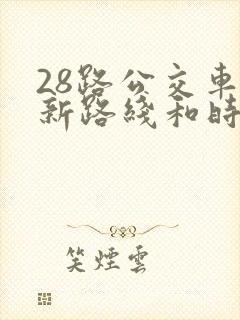 28路公交車
新路綫和時
笑煙雲